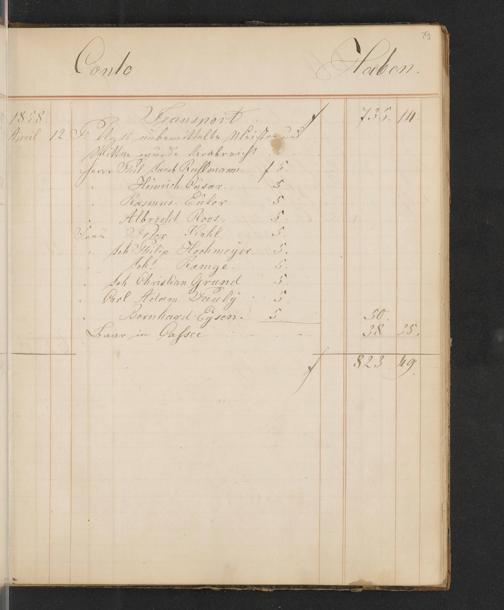 79
Conto Haben.
1858 Transport f 735. 14.
April 12 unbemittelte Meister und
wurde
Herrn Jacob f 5
" Heinrich 5.
" Rasmus Euler 5
" Albrecht Roos. 5.
Frau Peter 5.
" Joh Philip Hochmeyer 5.
" Joh: Range. 5.
" Joh Christian Grund 5
" Carl Adam Dauby 5.
" Bernhard Eysen. 5 50.
Baar in Cassa 38 35.
f 823 49.